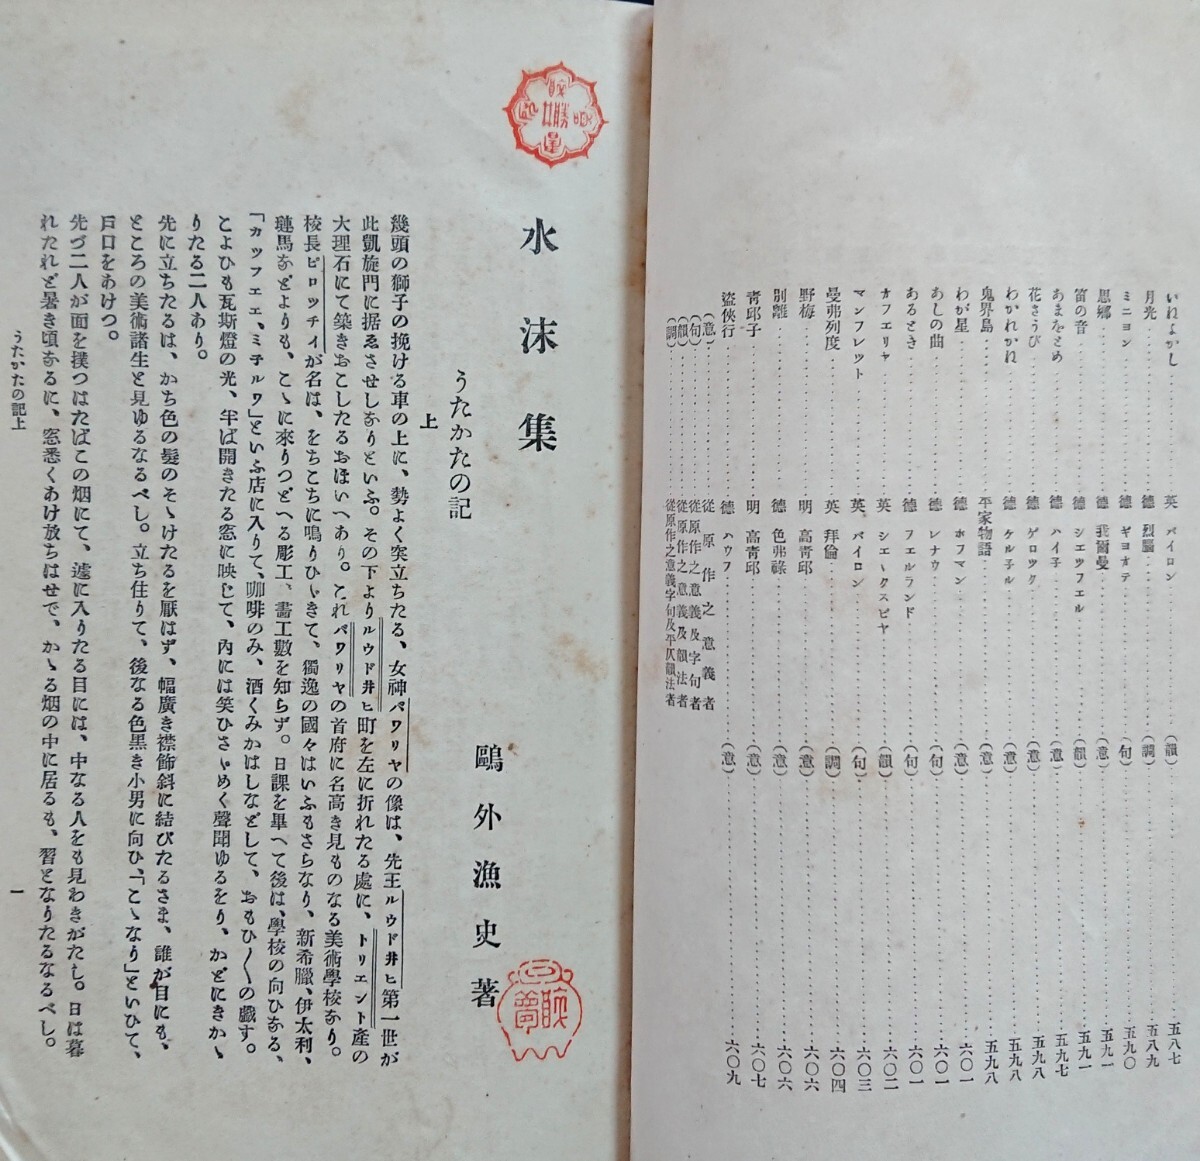 いねよかし 英 バイロン (韻) 五八七
月光 德 烈腦 (調) 五八九
ミニヨン 德 ギヨオテ (句) 五九〇
思鄉 德 我爾曼 (意) 五九一
笛の音 德 シエツフエル (韻) 五九一
あまをとめ 德 ハイ子 (意) 五九七
花さうび 德 ゲロツク (意) 五九八
わかれかね 德 ケル子ル (意) 五九八
鬼界島 平家物語 (意) 五九八
わが星 德 ホフマン (意) 六〇一
あしの曲 德 レナウ (句) 六〇一
あるとき 德 フエルランド (句) 六〇一
オフエリヤ 英 シエークスピヤ (韻) 六〇二
マンフレツト 英 バイロン (句) 六〇三
曼弗列度 英 拜倫 (調) 六〇四
野梅 明 高靑邱 (意) 六〇六
別離 德 色弗祿 (意) 六〇六
靑邱子 明 高靑邱 (意) 六〇七
盜俠行 德 ハウフ (意) 六〇九
(意) 從原作之意義者
(句) 從原作之意義及字句者
(韻) 從原作之意義及韻法者
(調) 從原作之意義字句及平仄韻法者
水沫集
鷗外漁史著
うたかたの記
上
幾頭の獅子の挽ける車の上に、勢よく突立ちたる、女神バワリヤの像は、先王ルウドヰヒ第一世が
此凱旋門に据ゑさせしなりといふ。その下よりルウドヰヒ町を左に折れたる處に、トリエント產の
大理石にて築きおこしたるおほいへあり。これバワリヤの首府に名高き見ものなる美術學校なり。
校長ピロツチイが名は、をちこちに鳴りひゞきて、獨逸の國々はいふもさらなり、新希臘、伊太利、
璉馬などよりも、こゝに來りつどへる彫工、畵工數を知らず。日課を畢へて後は、學校の向ひなる、
「カツフエエ、ミ子ルワ」といふ店に入りて、咖啡のみ、酒くみかはしなどして、おもひ〳〵の戲す。
こよひも瓦斯燈の光、半ば開きたる窓に映じて、內には笑ひさゞめく聲聞ゆるをり、かどにきかゝ
りたる二人あり。
先に立ちたるは、かち色の髮のそゝけたるを厭はず、幅廣き襟飾斜に結びたるさま、誰が目にも、
ところの美術諸生と見ゆるなるべし。立ち住りて、後なる色黑き小男に向ひ、「こゝなり」といひて、
戶口をあけつ。
先づ二人が面を撲つはたばこの烟にて、遽に入りたる目には、中なる人をも見わきがたし。日は暮
れたれど暑き頃なるに、窓悉くあけ放ちはせで、かゝる烟の中に居るも、習となりたるなるべし。
うたかたの記上
一